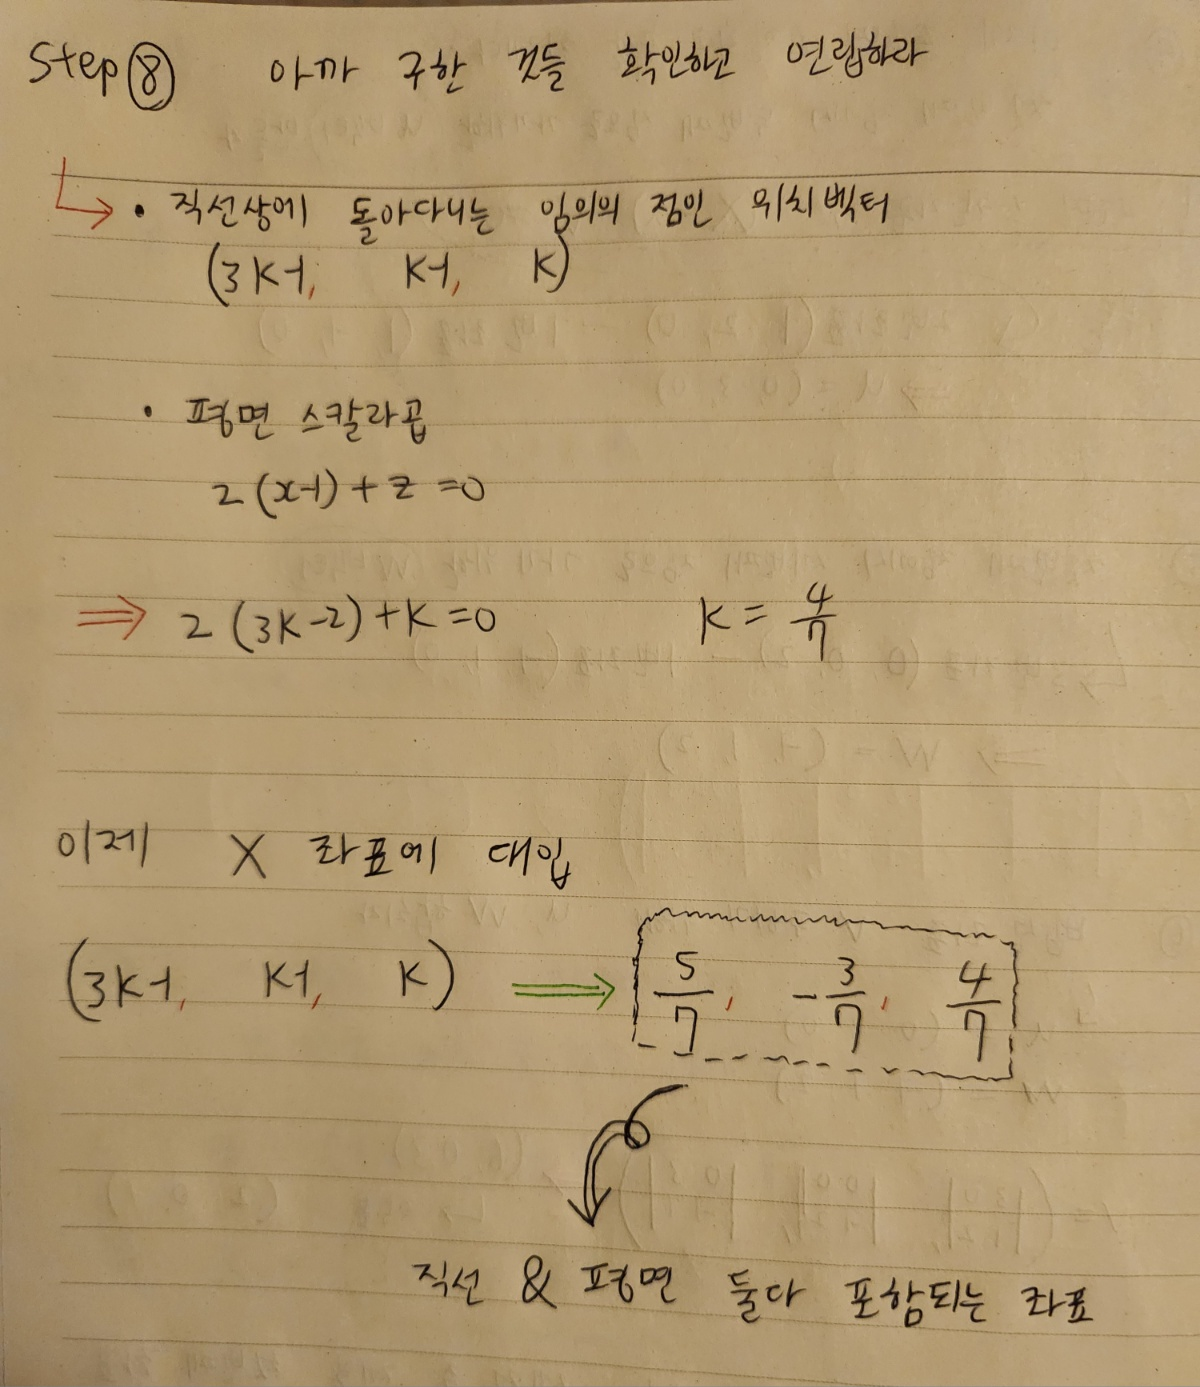 Step ⑧ 아까 구한 것들 확인하고 연립하라
• 직선상에 돌아다니는 임의의 점인 위치벡터
(3K-1, K-1, K)
• 평면 스칼라곱
2(x-1)+z=0
⇒ 2(3K-2)+K=0 K=4/7
이제 X 좌표에 대입
(3K-1, K-1, K) ⇒ 5/7, -3/7, 4/7
직선 & 평면 둘다 포함되는 좌표